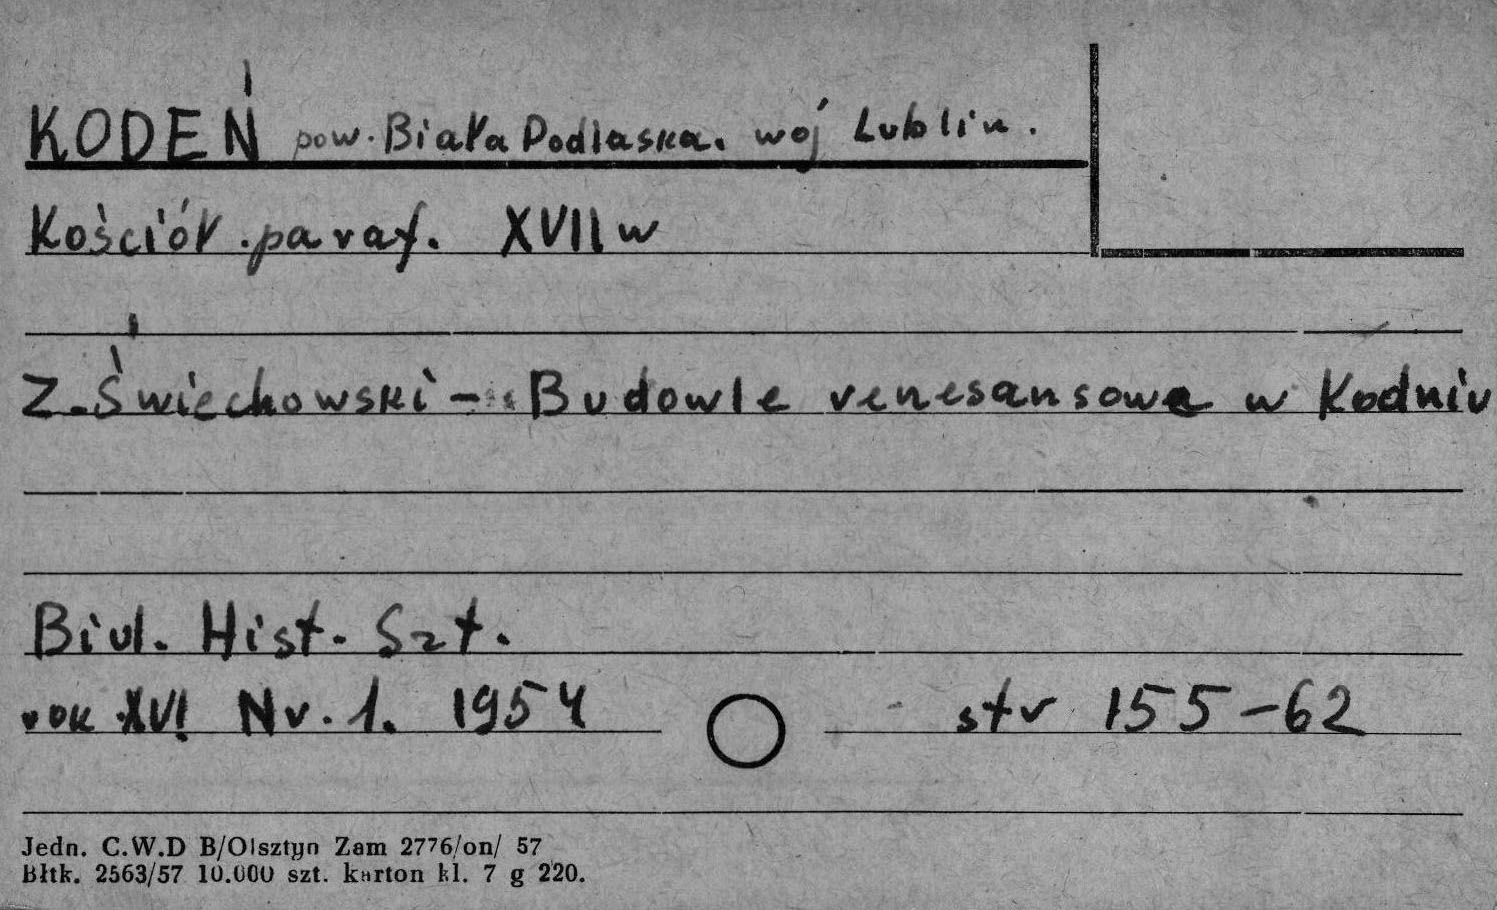 KODEŃ pow. Biała Podlaska. wój Lublin.
Kościół .paraf. XVII w
Z. Świechowski - „Budowle renesansowe w Kodniu
Biul. Hist. Szt.
rok XVI Nr. 1. 1954 str 155-62
Jedn. C.W.D B/Olsztyn Zam 2776/on/ 57
Błtk. 2563/57 10.000 szt. karton kl. 7 g 220.